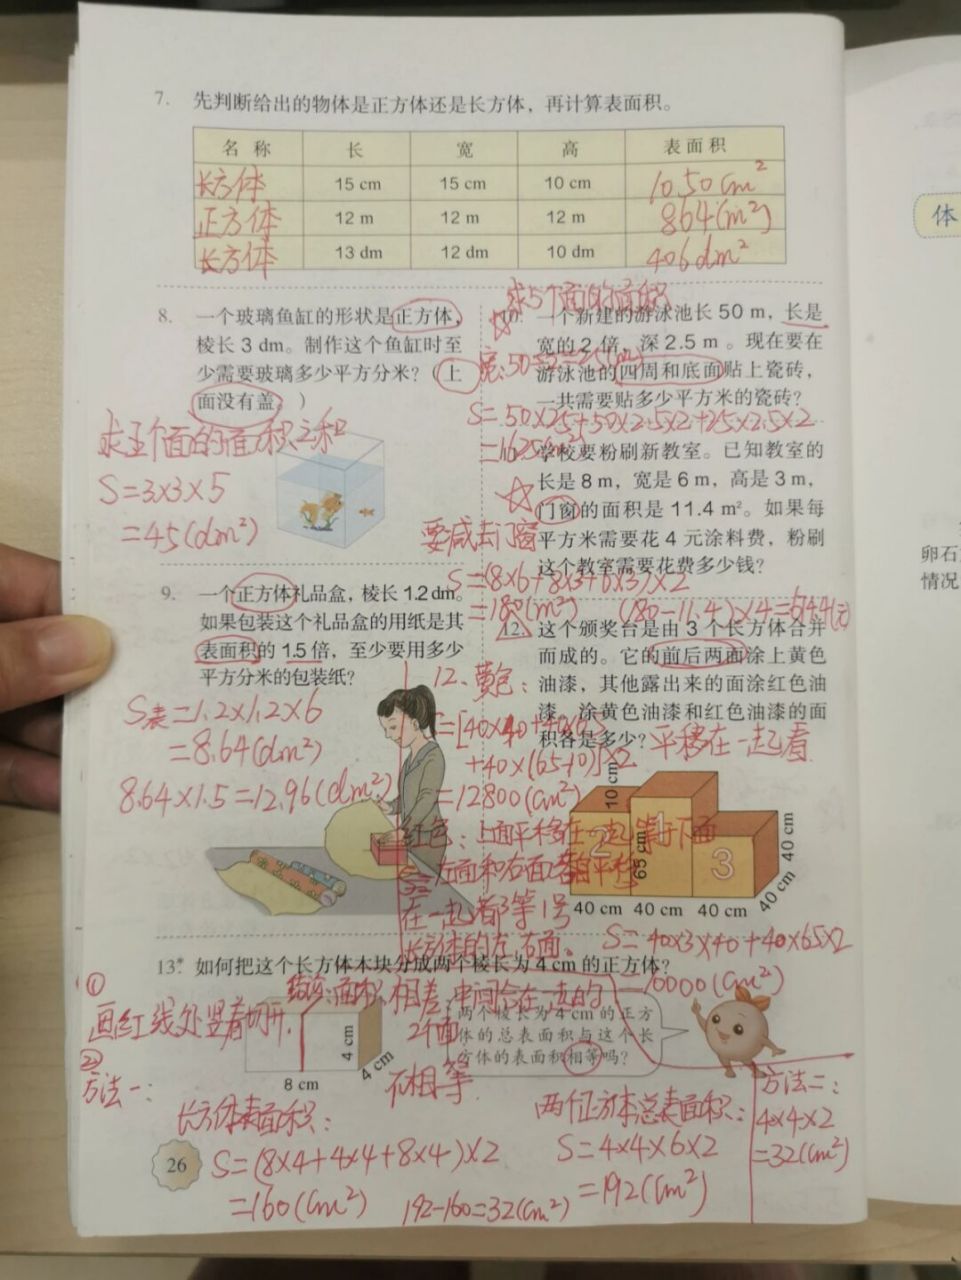 7. 先判断给出的物体是正方体还是长方体，再计算表面积。
名 称 长 宽 高 表面积
长方体 15 cm 15 cm 10 cm 1050cm²
正方体 12 m 12 m 12 m 864(m²)
长方体 13 dm 12 dm 10 dm 406dm²
8. 一个玻璃鱼缸的形状是正方体，
棱长 3 dm。制作这个鱼缸时至
少需要玻璃多少平方分米？（上
面没有盖。）
求五个面的面积之和
S=3×3×5
=45(dm²)
9. 一个正方体礼品盒，棱长 1.2 dm。
如果包装这个礼品盒的用纸是其
表面积的 1.5 倍，至少要用多少
平方分米的包装纸？
S表=1.2×1.2×6
=8.64(dm²)
8.64×1.5=12.96(dm²)
求5个面的面积
一个新建的游泳池长 50 m，长是
宽的 2 倍，深 2.5 m 。现在要在
宽:50÷2=25(m)
游泳池的四周和底面贴上瓷砖，
一共需要贴多少平方米的瓷砖？
S=50×25+50×2.5×2+25×2.5×2
=1625(m²)
学校要粉刷新教室。已知教室的
长是 8 m，宽是 6 m，高是 3 m，
门窗的面积是 11.4 m²。如果每
要减去门窗
平方米需要花 4 元涂料费，粉刷
这个教室需要花费多少钱？
S=(8×6+8×3+6×3)×2
=180(m²) (180-11.4)×4=674.4(元)
12. 这个颁奖台是由 3 个长方体合并
而成的。它的前后两面涂上黄色
油漆，其他露出来的面涂红色油
漆。涂黄色油漆和红色油漆的面
积各是多少？
平移在一起看
12、黄色：
+40×(65-10)]×2
=12800(cm²)
红色：上面平移在一起等于下面
左面和右面各自平移
在一起都等1号
长方体的左、右面。
S=40×3×40+40×65×2
=10000(cm²)
10 cm
65 cm
2 1 3
40 cm
40 cm 40 cm 40 cm 40 cm
13.* 如何把这个长方体木块分成两个棱长为 4 cm 的正方体？
①
画红线处竖着切开.
结论:面积相差中间合在一起的
2个面
不相等.
两个棱长为 4 cm 的正方
体的总表面积与这个长
方体的表面积相等吗？
4 cm
4 cm
8 cm
②
方法一：
长方体表面积：
S=(8×4+4×4+8×4)×2
=160(cm²)
两个正方体总表面积：
S=4×4×6×2
=192(cm²)
192-160=32(cm²)
方法二：
4×4×2
=32(cm²)
26
体
卵石
情况